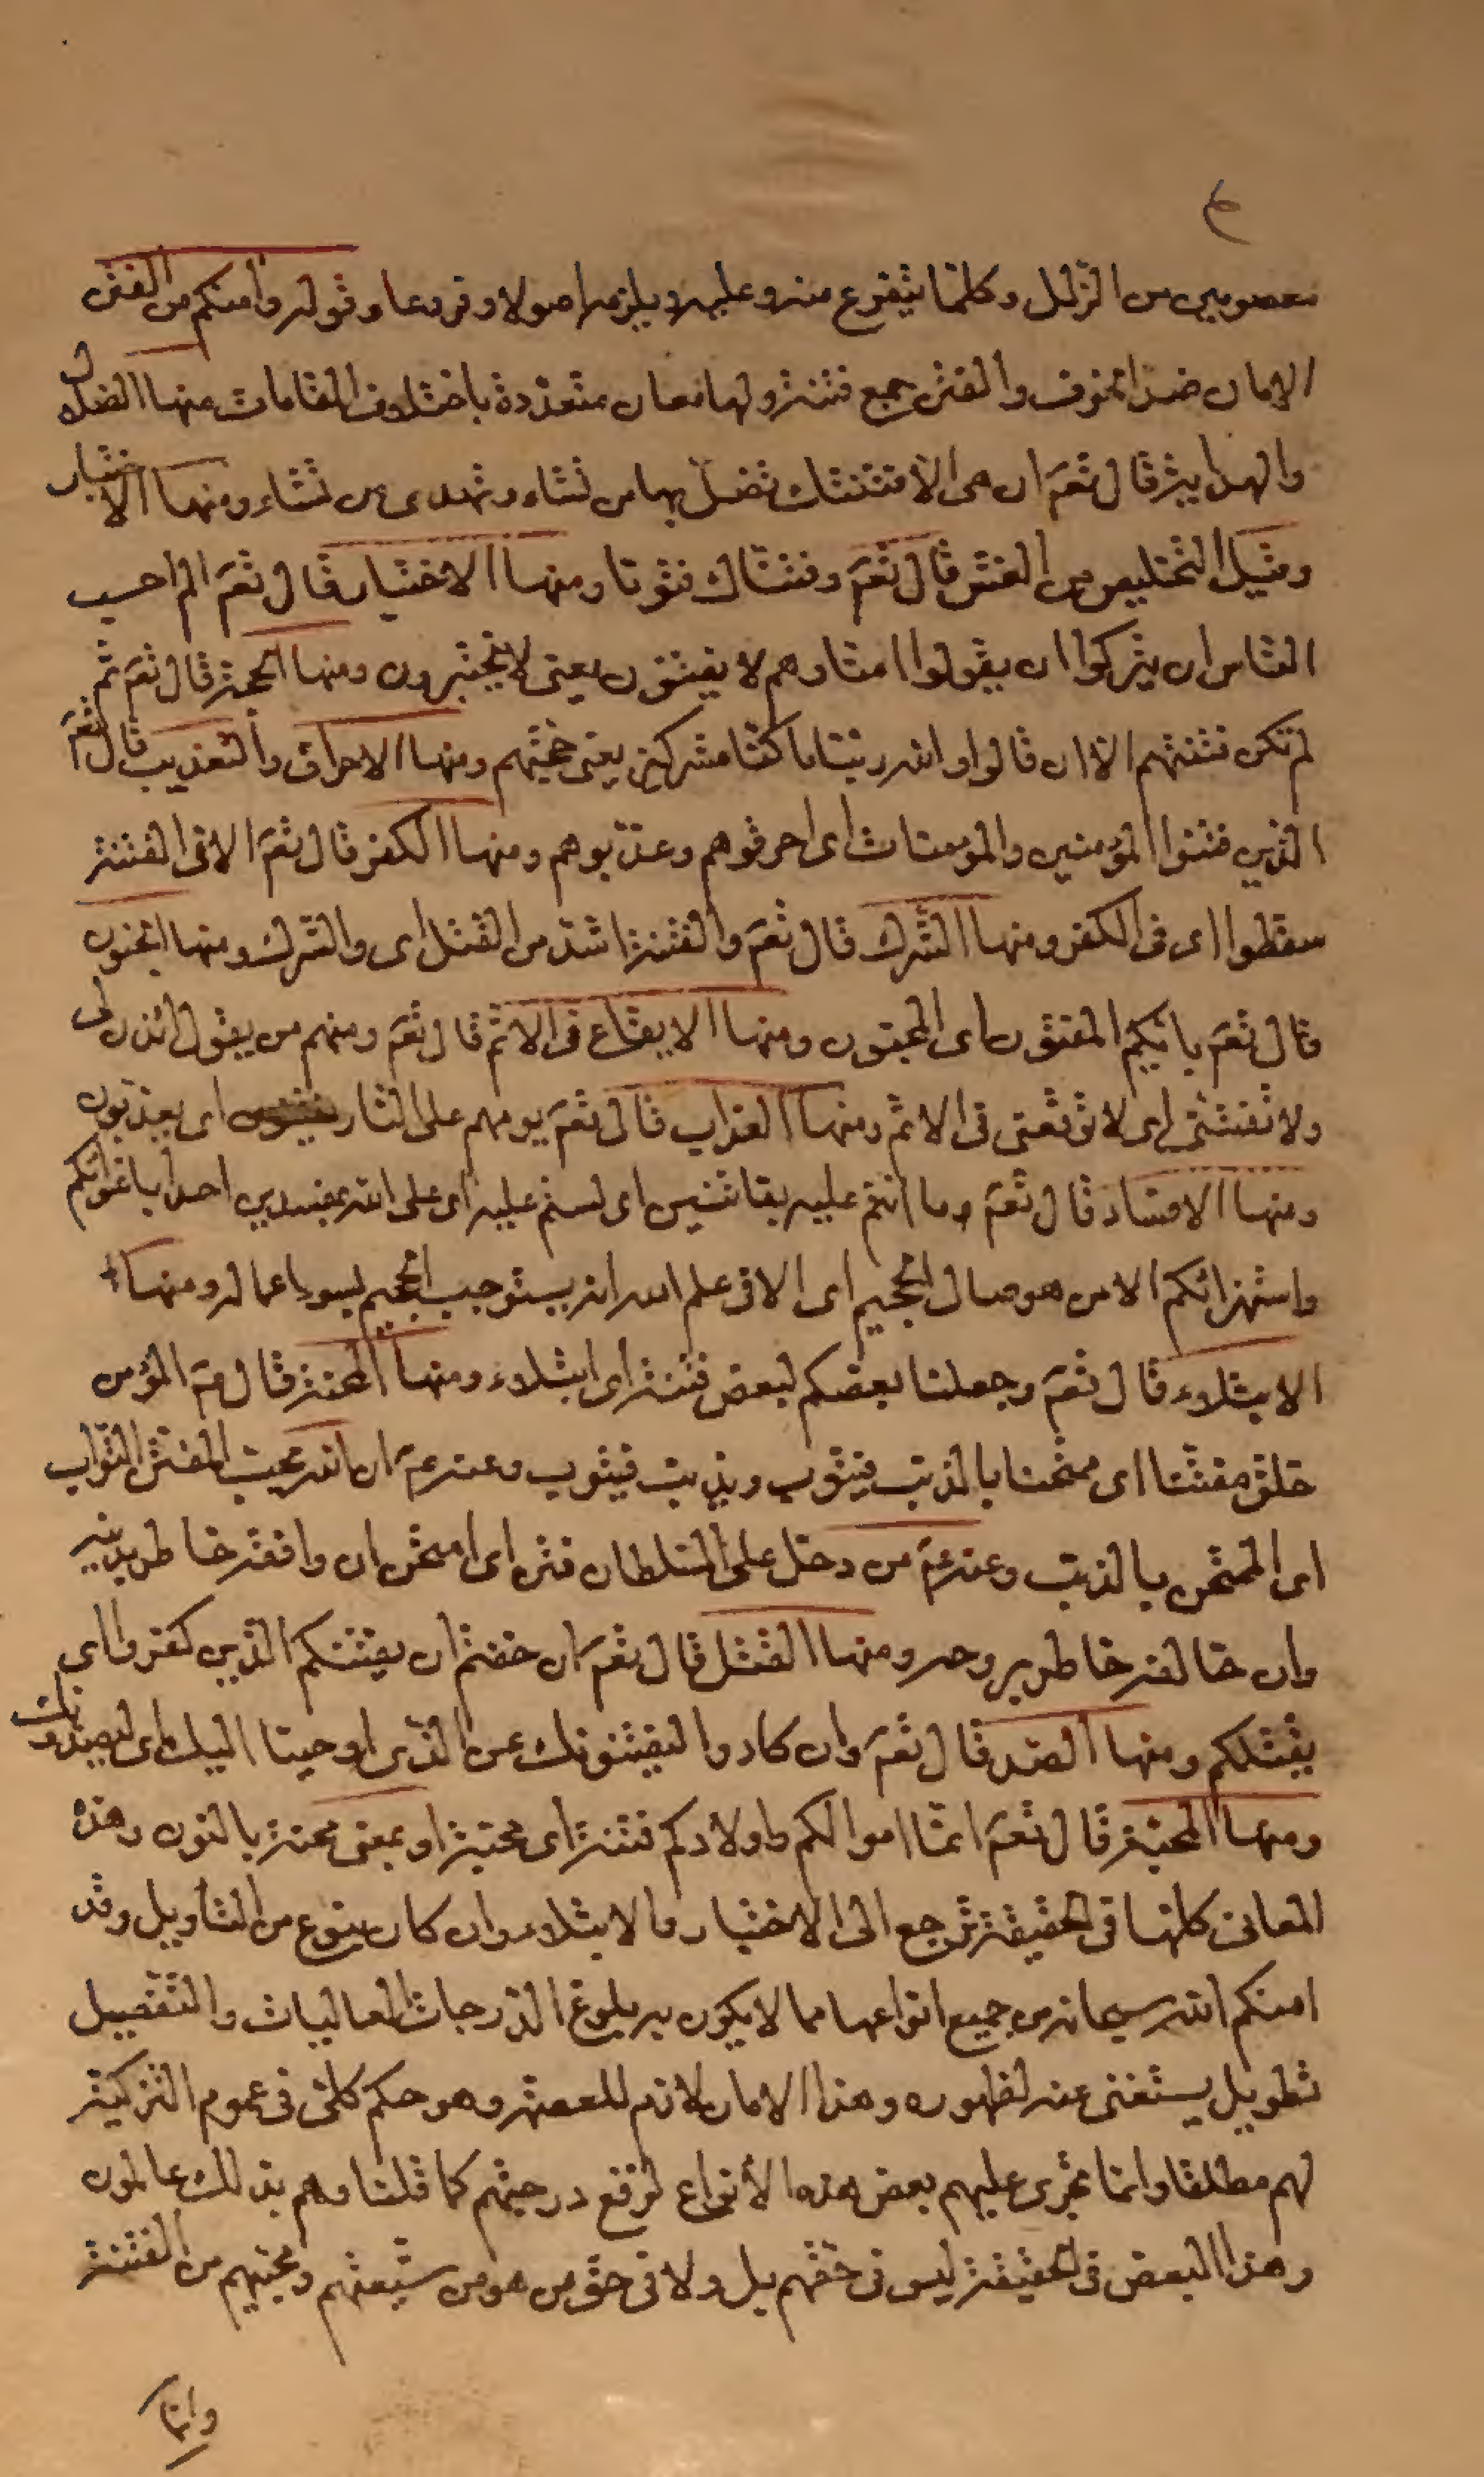 معصومين من الزلل وكلما يتفرع منه وعليه ويلزمه اصولا وفروعا وقوله وآمنكم من الفتن
الامان ضد الخوف والفتن جمع فتنة ولها معان متعددة باختلاف المقامات منها الضلال
والهداية قال تعم ان هى الا فتنتك تضل بها من تشاء وتهدى من تشاء ومنها الاختبار
وقيل التخليص من الغش قال تعم وفتناك فتونا ومنها الاختبار قال تعم الم احسب
الناس ان يتركوا ان يقولوا امنا وهم لا يفتنون يعنى لا يختبرون ومنها الحجة قال تعم ثم
لم تكن فتنتهم الا ان قالوا والله ربنا ما كنا مشركين يعنى حجتهم ومنها الاحراق والتعذيب قال تعم
الذين فتنوا المؤمنين والمؤمنات اى احرقوهم وعذبوهم ومنها الكفر قال تعم الا فى الفتنة
سقطوا اى فى الكفر ومنها الشرك قال تعم والفتنة اشد من القتل اى والشرك ومنها الجنون
قال تعم بائيكم المفتون اى المجنون ومنها الايقاع فى الاثم قال تعم ومنهم من يقول ائذن لى
ولا تفتنى اى لا توقعنى فى الاثم ومنها العذاب قال تعم يوم هم على النار يفتنون اى يعذبون
ومنها الافساد قال تعم وما انتم عليه بفاتنين اى لستم عليه اى على الله بمفسدين احدا باغوائكم
واستهزائكم الا من هو صال الجحيم اى الا فى علم الله انه يستوجب الجحيم لسوء اعماله ومنها
الابتلاء قال تعم وجعلنا بعضكم لبعض فتنة اى ابتلاء ومنها المحنة قال عم المؤمن
خلق مفتنا اى ممتحنا بالذنب فيتوب ويذنب فيتوب وعنه عم ان الله يحب المفتن التواب
اى الممتحن بالذنب وعنه عم من دخل على السلطان فتن اى امتحن ان وافقه خاطر بدينه
وان خالفه خاطر بروحه ومنها القتل قال تعم ان خفتم ان يفتنكم الذين كفروا اى
يقتلكم ومنها الصد قال تعم وان كادوا ليفتنونك عن الذى اوحينا اليك اى ليصدونك
ومنها المحبة قال تعم انما اموالكم واولادكم فتنة اى محبة او بمعنى محنة بالنون وهذه
المعانى كلها فى الحقيقة ترجع الى الاختبار والابتلاء وان كان بنوع من التأويل وقد
امنكم الله سبحانه من جميع انواعها مما لا يكون به بلوغ الدرجات العاليات والتفصيل
تطويل يستغنى عنه لظهوره وهذا الامان لازم للعصمة وهو حكم كلى فى عموم التزكية
لهم مطلقا وانما تجرى عليهم بعض هذه الأنواع لرفع درجتهم كما قلنا وهم بذلك عالمون
وهذا البعض فى الحقيقة ليس فى حقهم بل ولا فى حق من هو من شيعتهم ومحبيهم من الفتنة
وانما